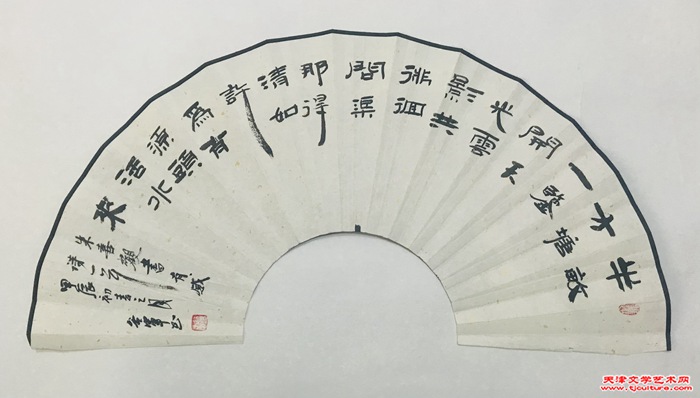 半畝
方塘
一鑒
開天
光雲
影共
徘徊
問渠
那得
清如
許
爲有
源頭
活水
來
朱喜觀書有感
詩一首
甲辰初春之月
天津文学艺术网
www.tjculture.com